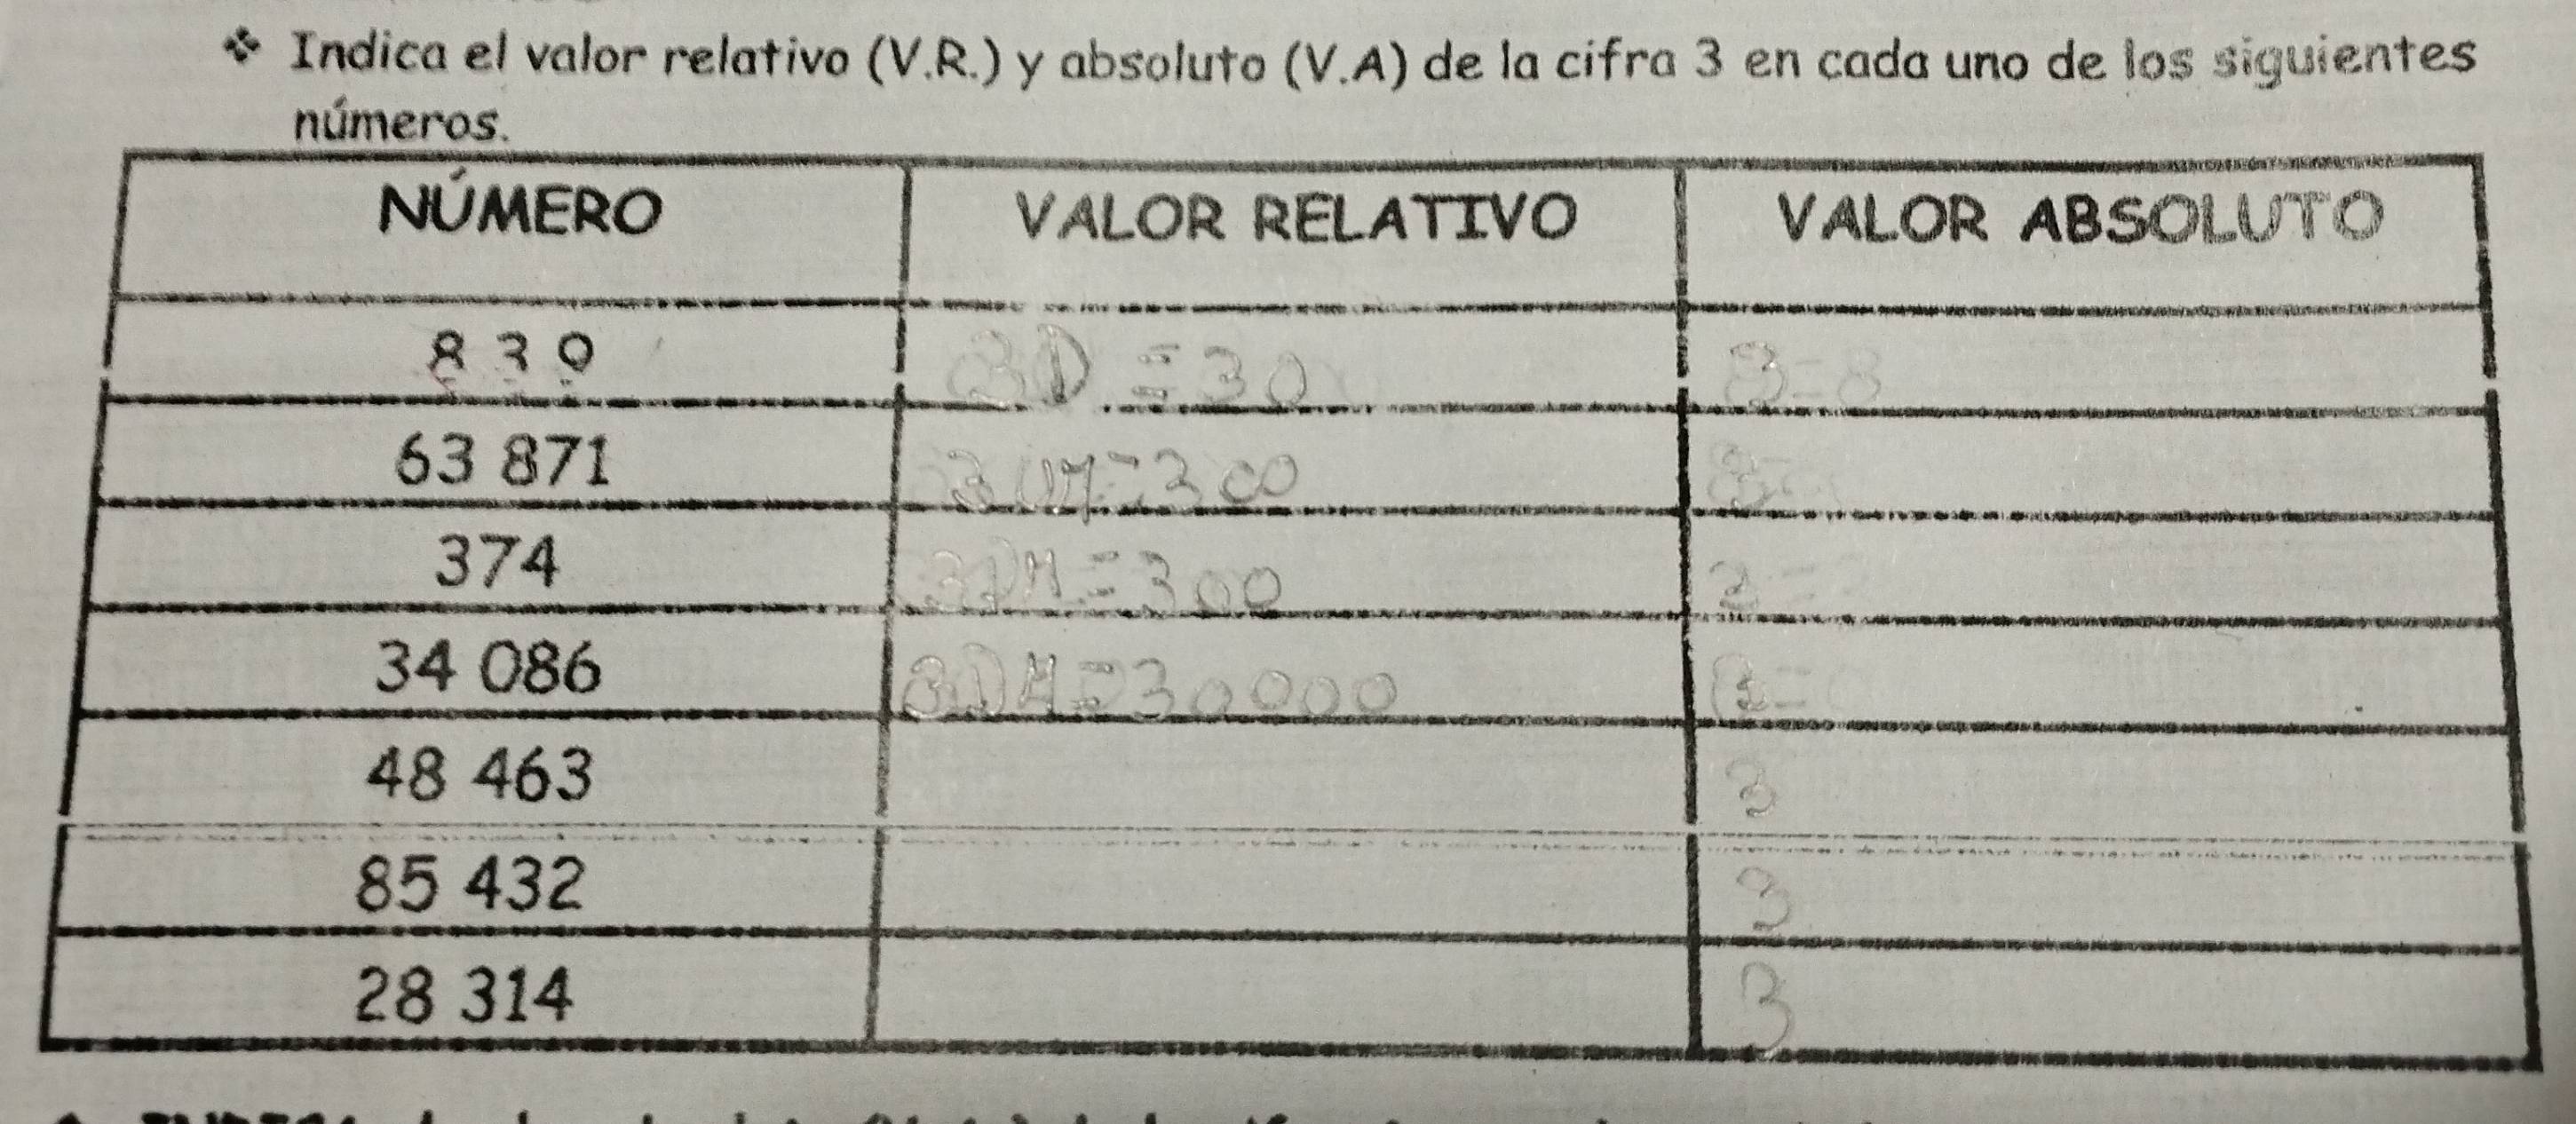 ❖ Indica el valor relativo (V.R.) y absoluto (V.A) de la cifra 3 en cada uno de los siguientes
números.
NÚMERO VALOR RELATIVO VALOR ABSOLUTO
839 3D = 30 3=
63 871 3UM=300 3=
374 3DM=300 3=
34 086 3DM=30000 3=
48 463 3
85 432 3
28 314 3